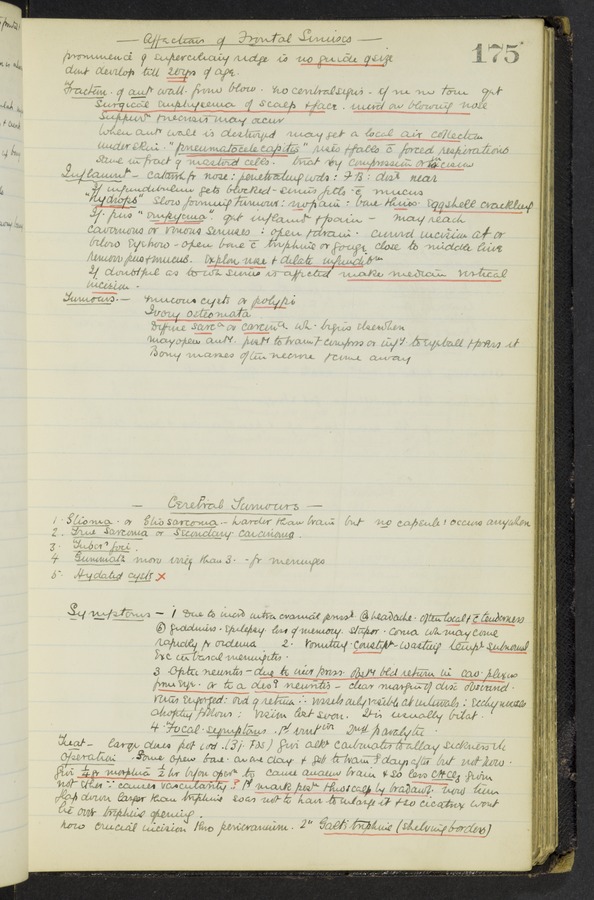 Affections of Frontal Sinuses
175
prominence of superciliary ridge is no guide of size
dont develop till 20 yrs of age.
Fracture of ant wall from blow. no central signs. if m m torn get
Surgical emphysema of scalp & face. incrd on blowing nose
Suppurn & necrosis may occur
when ant wall is destroyed may get a local air collection
under skin. "pneumatocele capitis" rises & falls c forced respirations
Same in fract of mastoid cells. treat by compression or incision
Inflammn - catarrh fr nose: penetrating wds: F B: disc near
If infundibulum gets blocked - sinus fills c mucus
"Hydrops" slow forming tumour: no pain: bone thins: eggshell crackling
If pus "empyema" get inflamn & pain - may reach
cavernous or venous sinuses: open & drain. curved incision at or
below eyebrow - open bone c trephine or gouge close to middle line
remove pus & mucus. explore nose & dilate infundibm
If doubtful as to wh sinus is affected make median vertical
incision.
Tumours. - mucous cysts or polypi
Ivory osteomata
Diffuse sarca or carcinma wh. begins elsewhen
may open antr to brain & compress or to eyeball & press it
Bony masses often necrose & come away
Cerebral Tumours
1. Glioma or Gliosarcoma - harder than brain but no capsule: occurs anywhen
2. True Sarcoma or Secondary carcinoma
3. Tuberr foci.
4 Gummata more irreg than 3. - fr meninges
5. Hydatid cysts x
Symptoms - 1 Due to incrd intra cranial press. (a) headache. often local & c tenderness
(b) giddiness. epilepsy loss of memory. stupor. coma wh may come
rapidly fr oedema. 2. Vomiting. constipn. wasting tempr subnormal
exc in basal meningitis.
3 Optic neuritis - due to incr press obstrg bld return in cav. plexus
or to a descg neuritis - clear margin of disc obscured.
veins engorged: oed of retina: vessels only visible at intervals:
atrophy follows: vision lost soon. It is usually bilat.
4 Focal symptoms. 1st irritve 2nd paralytic.
Treat - large doses pot iod. (3i TDS) give alk carbonates to allay sickness
operation. Some open bone on one day & get to brain 5 days after but not hors.
Give 1/4 gr morphia 1/2 hr before opern to cause anaemn brain & so less CHCl3 given
not ether ∵ causes vascularity. 1st mark posn thro scalp by bradawl. now turn
flap down larger than trephine so as not to have to enlarge it & so cicatrix wont
lie over trephine opening.
now crucial incision thro pericranium. 2" Galt's trephine (shelving borders)